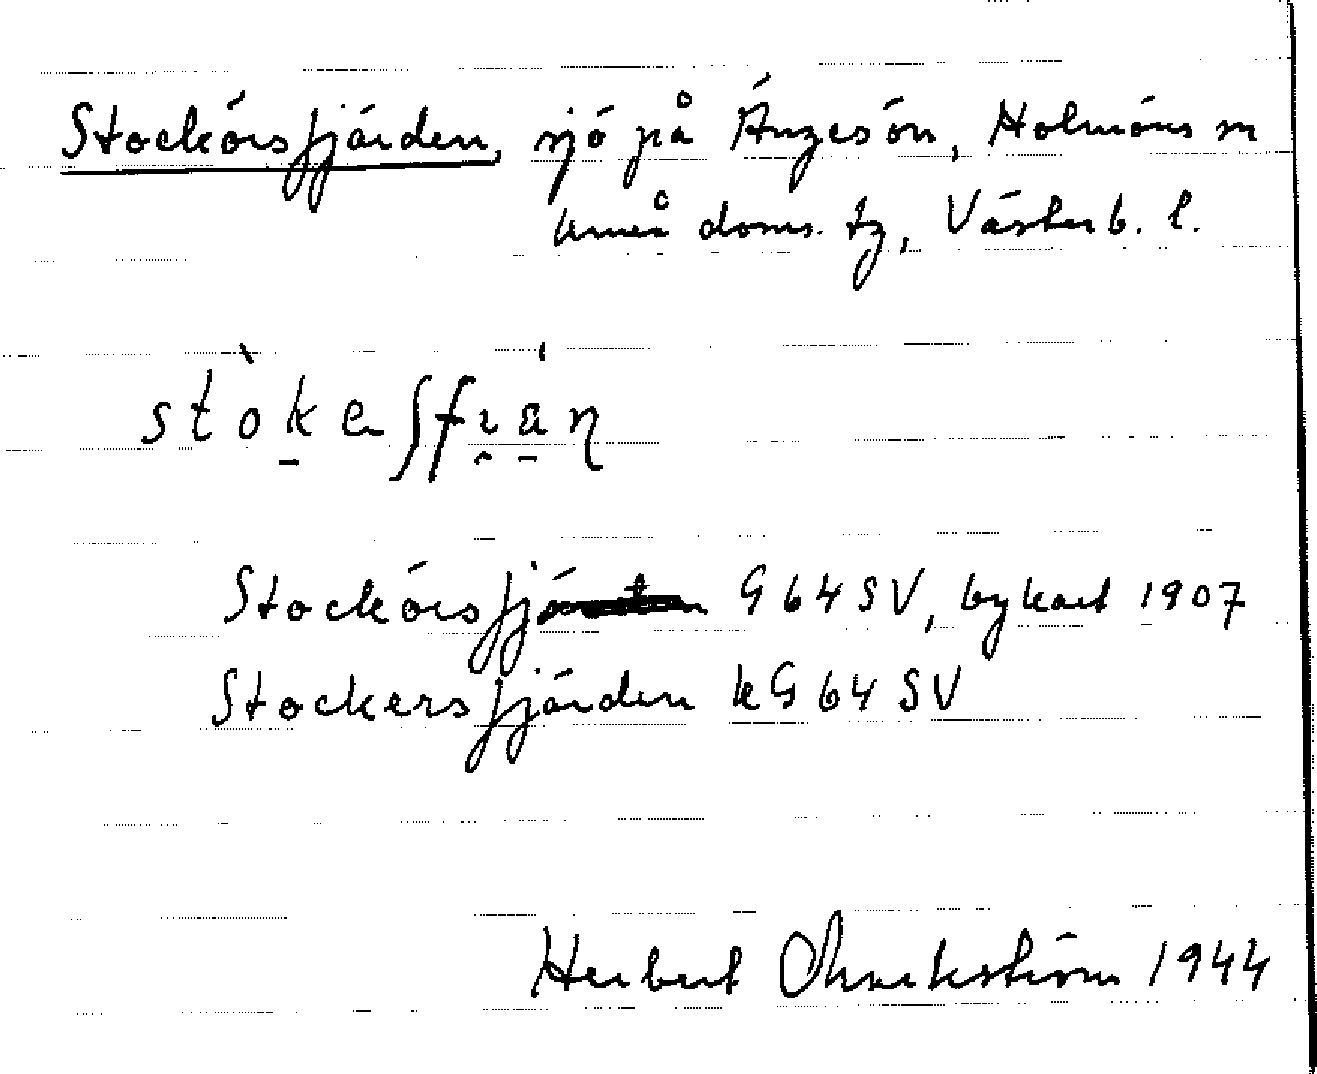 Stockörsfjärden, sjö på Ängesön, Holmöns sn
Umeå doms. tg, Västerb. l.
stòkeʃfi̯än
Stockörsfjä G 64 SV, bykart 1907
Stockersfjärden kG 64 SV
Herbert 1944